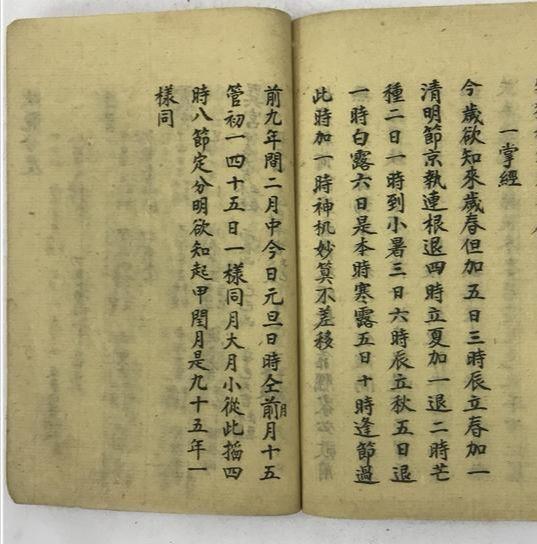 一掌經
今歲欲知來歲春但加五日三時辰立春加一
清明節京執連根退四時立夏加一退二時芒
種二日一時到小暑三日六時辰立秋五日退
一時白露六日是本時寒露五日十時逢節過
此時加一時神机妙算不差移
前九年閏二月中今日元旦日時仝前月十五
管初一四十五日一樣同月大月小從此搯四
時八節定分明欲知起甲閏月是九十五年一
樣同